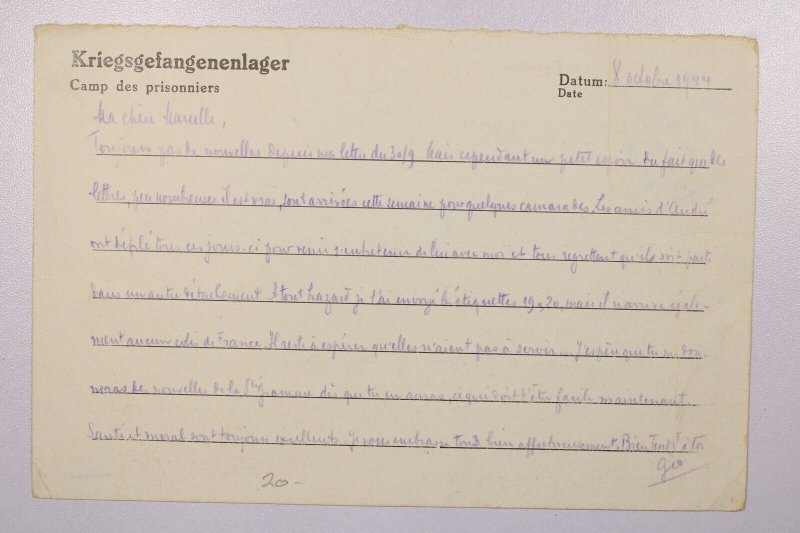 Kriegsgefangenenlager
Camp des prisonniers
Datum: 8 octobre 1944
Date
Ma chère Marcelle,
Toujours pas de nouvelles depuis ma lettre du 30/9. Mais cependant un petit espoir du fait que des
lettres, peu nombreuses il est vrai, sont arrivées cette semaine pour quelques camarades. Les amis d'André
ont défilé tous ces jours-ci pour venir s'entretenir de lui avec moi et tous regrettent qu'ils soit parti
dans un autre détachement. A tout hazard je t'ai envoyé les étiquettes 19 et 20, mais il n'arrive égale-
ment aucun colis de France. Il reste à espérer qu'elles n'aient pas à servir... J'espère que tu me don-
neras des nouvelles de la dès que tu en auras, ce qui doit t'être facile maintenant.
Santé et moral sont toujours excellents. Je vous embrasse tous bien affectueusement. Bien à toi
20-